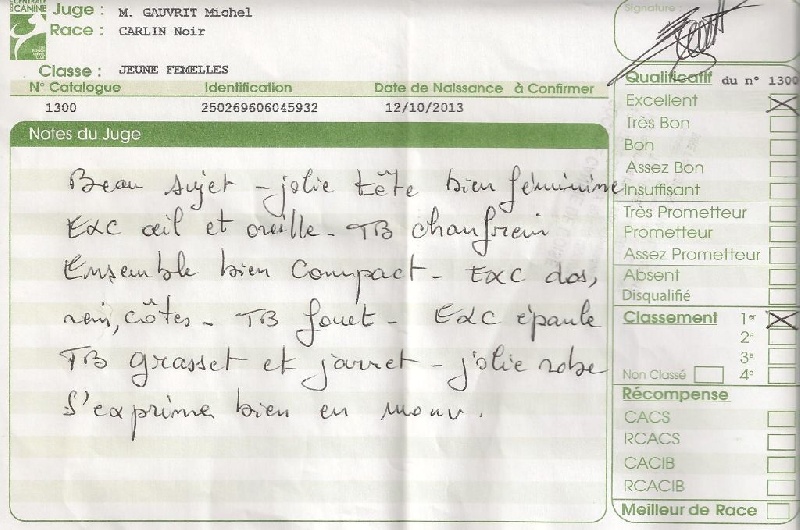 CANINE
Juge : M. GAUVRIT Michel
Race : CARLIN Noir
Classe : JEUNE FEMELLES
N° Catalogue Identification Date de Naissance à Confirmer
1300 250269606045932 12/10/2013
Notes du Juge
Beau sujet - jolie tête bien féminine
Exc œil et oreille - TB chanfrein
Ensemble bien compact - Exc dos,
rein, côtes - TB fouet - Exc épaule
TB grasset et jarret - jolie robe
S'exprime bien en mouv.
Signature :
Qualificatif du n° 1300
Excellent
Très Bon
Bon
Assez Bon
Insuffisant
Très Prometteur
Prometteur
Assez Prometteur
Absent
Disqualifié
Classement 1er
2e
3e
Non Classé 4e
Récompense
CACS
RCACS
CACIB
RCACIB
Meilleur de Race